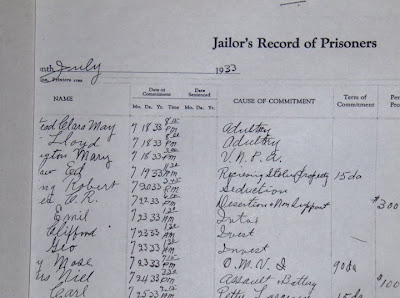 Jailor's Record of Prisoners
nth July 1933
Printers
NAME Date of Commitment Date Sentenced CAUSE OF COMMITMENT Term of Commitment Pe
Mo. Da. Yr. Time Mo. Da. Yr.
Clara May 7 18 33 PM Adultry
Lloyd 7 18 33 PM Adultry
Mary 7 18 33 PM V.N.P.A.
Ed 7 19 33 PM Receiving Stolen Property 15 da
Robert 7 20 33 PM Seduction
O.K. 7 22 33 PM Desertion & Non Support $300
Emil 7 23 33 AM Intox
Clifford 7 23 33 AM Invest
Geo 7 23 33 AM Invest
Mose 7 23 33 PM O.M.V.I 90 da
Niel 7 24 33 PM Assault & Battery $100
Carl 7 25 33 PM Petty Larceny 15 da